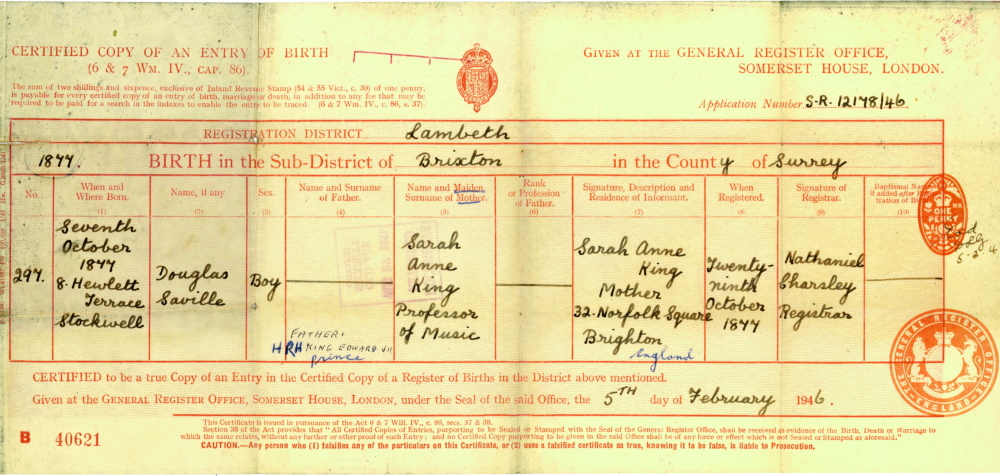 CERTIFIED COPY OF AN ENTRY OF BIRTH
(6 & 7 WM. IV., CAP. 86).
The sum of two shillings and sixpence, exclusive of Inland Revenue Stamp (54 & 55 Vict., c. 39) of one penny,
is payable for every certified copy of an entry of birth, marriage or death, in addition to any fee that may be
required to be paid for a search in the indexes to enable the entry to be traced. (6 & 7 Wm. IV., c. 86, s. 37).
GIVEN AT THE GENERAL REGISTER OFFICE,
SOMERSET HOUSE, LONDON.
Application Number S-R. 12178/46
REGISTRATION DISTRICT Lambeth
1877. BIRTH in the Sub-District of Brixton in the County of Surrey
No.
When and
Where Born.
(1)
Name, if any.
(2)
Sex.
(3)
Name and Surname
of Father.
(4)
Name and Maiden
Surname of Mother.
(5)
Rank
or Profession
of Father.
(6)
Signature, Description and
Residence of Informant.
(7)
When
Registered.
(8)
Signature of
Registrar.
(9)
Baptismal
if added after
tration of
(10)
297.
Seventh
October
1877
8. Hewlett
Terrace
Stockwell
Douglas
Saville
Boy
Sarah
Anne
King
Professor
of Music
Sarah Anne
King
Mother
32. Norfolk Square
Brighton
England
Twenty-
ninth
October
1877
Nathaniel
Charsley
Registrar
FATHER:
HRH KING EDWARD VII
prince
ONE
PENNY
GENERAL REGISTER OFFICE
ENGLAND
CERTIFIED to be a true Copy of an Entry in the Certified Copy of a Register of Births in the District above mentioned.
Given at the GENERAL REGISTER OFFICE, SOMERSET HOUSE, LONDON, under the Seal of the said Office, the 5TH day of February 1946.
B 40621
This Certificate is issued in pursuance of the Act 6 & 7 Will. IV., c. 86, secs. 37 & 38.
Section 38 of the Act provides that "All Certified Copies of Entries, purporting to be Sealed or Stamped with the Seal of the General Register Office, shall be received as evidence of the Birth, Death or Marriage to
which the same relates, without any further or other proof of such Entry; and no Certified Copy purporting to be given in the said Office shall be of any force or effect which is not Sealed or Stamped as aforesaid."
CAUTION.—Any person who (1) falsifies any of the particulars on this Certificate, or (2) uses a falsified certificate as true, knowing it to be false, is liable to Prosecution.